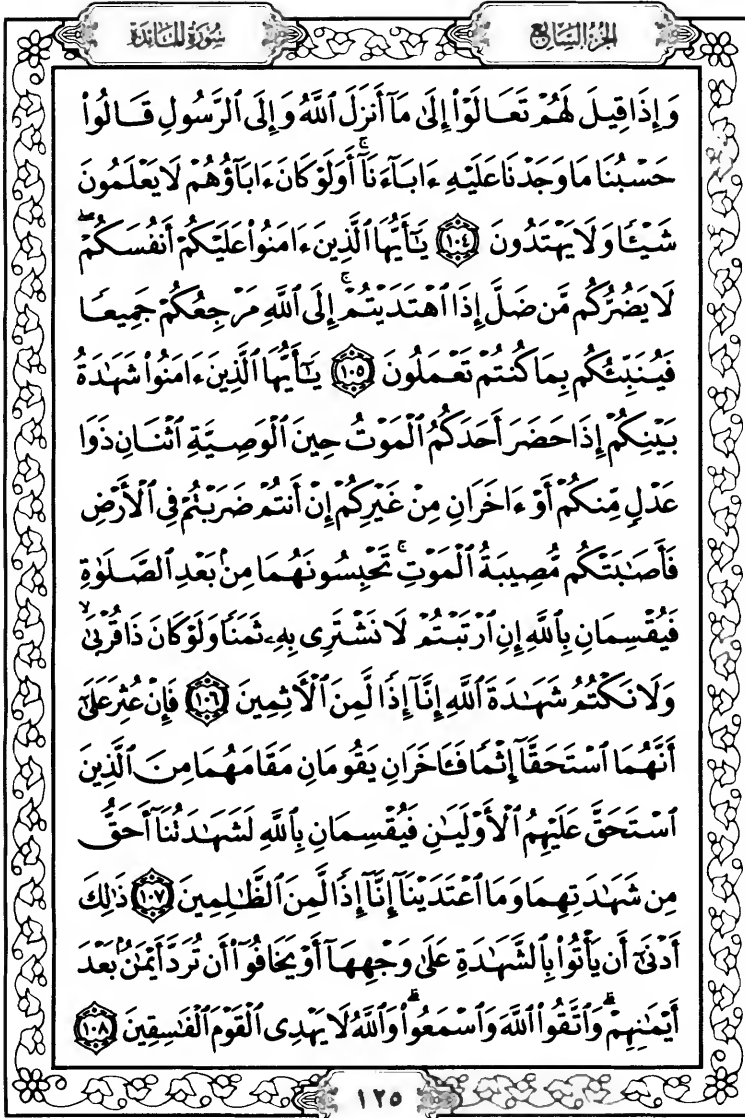 سُورَةُ المَائدة
الجزءُ السَّابِع
وَإِذَا قِيلَ لَهُمْ تَعَالَوْا۟ إِلَىٰ مَآ أَنزَلَ ٱللَّهُ وَإِلَى ٱلرَّسُولِ قَالُوا۟
حَسْبُنَا مَا وَجَدْنَا عَلَيْهِ ءَابَآءَنَآ ۚ أَوَلَوْ كَانَ ءَابَآؤُهُمْ لَا يَعْلَمُونَ
شَيْـًٔا وَلَا يَهْتَدُونَ ١٠٤ يَـٰٓأَيُّهَا ٱلَّذِينَ ءَامَنُوا۟ عَلَيْكُمْ أَنفُسَكُمْ ۖ
لَا يَضُرُّكُم مَّن ضَلَّ إِذَا ٱهْتَدَيْتُمْ ۚ إِلَى ٱللَّهِ مَرْجِعُكُمْ جَمِيعًا
فَيُنَبِّئُكُم بِمَا كُنتُمْ تَعْمَلُونَ ١٠٥ يَـٰٓأَيُّهَا ٱلَّذِينَ ءَامَنُوا۟ شَهَـٰدَةُ
بَيْنِكُمْ إِذَا حَضَرَ أَحَدَكُمُ ٱلْمَوْتُ حِينَ ٱلْوَصِيَّةِ ٱثْنَانِ ذَوَا
عَدْلٍ مِّنكُمْ أَوْ ءَاخَرَانِ مِنْ غَيْرِكُمْ إِنْ أَنتُمْ ضَرَبْتُمْ فِى ٱلْأَرْضِ
فَأَصَـٰبَتْكُم مُّصِيبَةُ ٱلْمَوْتِ ۚ تَحْبِسُونَهُمَا مِنۢ بَعْدِ ٱلصَّلَوٰةِ
فَيُقْسِمَانِ بِٱللَّهِ إِنِ ٱرْتَبْتُمْ لَا نَشْتَرِى بِهِۦ ثَمَنًا وَلَوْ كَانَ ذَا قُرْبَىٰ ۙ
وَلَا نَكْتُمُ شَهَـٰدَةَ ٱللَّهِ إِنَّآ إِذًا لَّمِنَ ٱلْـَٔاثِمِينَ ١٠٦ فَإِنْ عُثِرَ عَلَىٰٓ
أَنَّهُمَا ٱسْتَحَقَّآ إِثْمًا فَـَٔاخَرَانِ يَقُومَانِ مَقَامَهُمَا مِنَ ٱلَّذِينَ
ٱسْتَحَقَّ عَلَيْهِمُ ٱلْأَوْلَيَـٰنِ فَيُقْسِمَانِ بِٱللَّهِ لَشَهَـٰدَتُنَآ أَحَقُّ
مِن شَهَـٰدَتِهِمَا وَمَا ٱعْتَدَيْنَآ إِنَّآ إِذًا لَّمِنَ ٱلظَّـٰلِمِينَ ١٠٧ ذَٰلِكَ
أَدْنَىٰٓ أَن يَأْتُوا۟ بِٱلشَّهَـٰدَةِ عَلَىٰ وَجْهِهَآ أَوْ يَخَافُوٓا۟ أَن تُرَدَّ أَيْمَـٰنٌۢ بَعْدَ
أَيْمَـٰنِهِمْ ۗ وَٱتَّقُوا۟ ٱللَّهَ وَٱسْمَعُوا۟ ۗ وَٱللَّهُ لَا يَهْدِى ٱلْقَوْمَ ٱلْفَـٰسِقِينَ ١٠٨
١٢٥